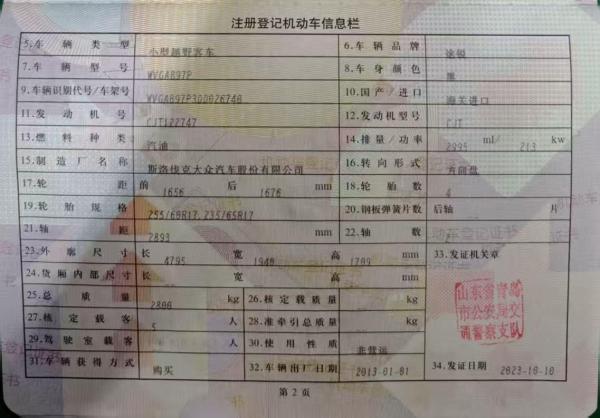 注册登记机动车信息栏
5.车辆类型 小型越野客车 6.车辆品牌 途锐
7.车辆型号 WVGAB97P 8.车身颜色
9.车辆识别代号/车架号 10.国产/进口 海关进口
11.发动机号 CJT122747 12.发动机型号 CJT
13.燃料种类 汽油 14.排量/功率 2995 ml/ 213 kw
15.制造厂名称 斯洛伐克大众汽车股份有限公司 16.转向形式 方向盘
17.轮距 前 1656 后 1676 mm 18.轮胎数 4
19.轮胎规格 255/60R17,235/65R17 20.钢板弹簧片数 后轴 片
21.轴距 2893 mm 22.轴数
23.外廓尺寸 长 4795 宽 1940 高 1709 mm 33.发证机关章
24.货厢内部尺寸 长 宽 高 mm
25.总质量 kg 26.核定载质量 kg
27.核定载客 5 人 28.准牵引总质量 kg
29.驾驶室载客 人 30.使用性质 非营运
31.车辆获得方式 购买 32.车辆出厂日期 2013-01-01 34.发证日期 2023-10-10
山东省青岛
市公安局交
通警察支队
第2页